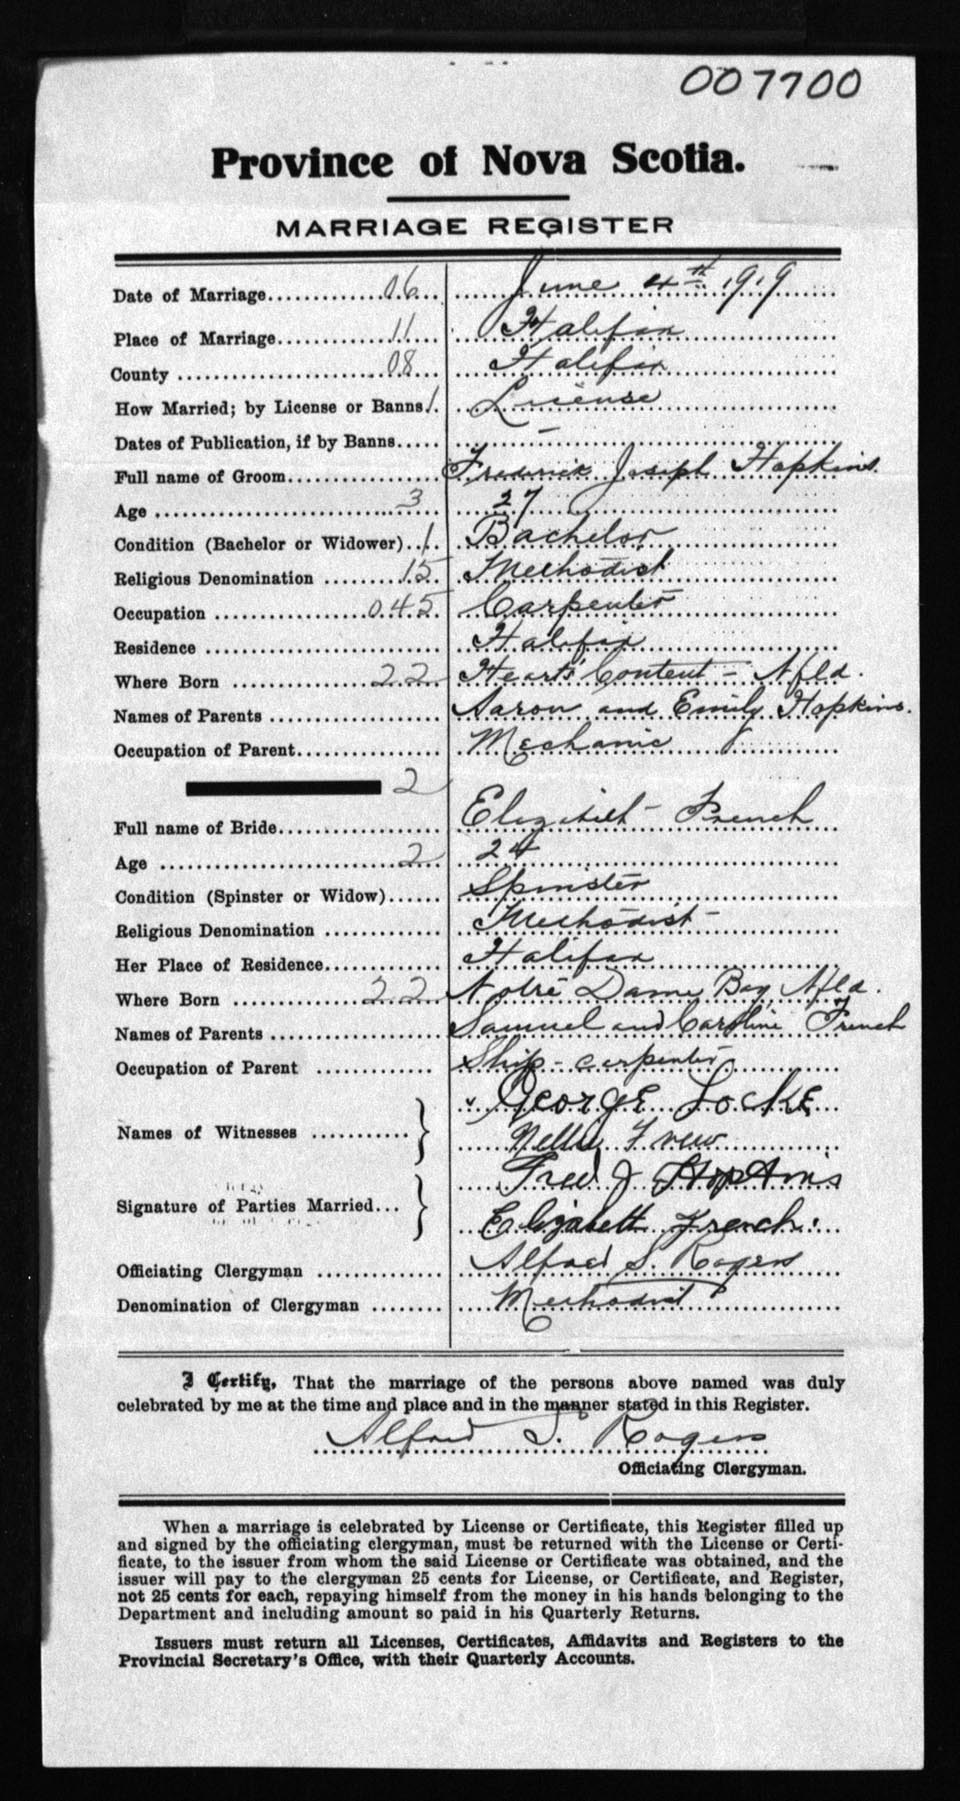 007700
Province of Nova Scotia.
MARRIAGE REGISTER
Date of Marriage 06 June 4th 1919
Place of Marriage 11 Halifax
County 08 Halifax
How Married; by License or Banns 1 License
Dates of Publication, if by Banns —
Full name of Groom Frederick Joseph Hopkins
Age 3 27
Condition (Bachelor or Widower) 1 Bachelor
Religious Denomination 15 Methodist
Occupation 045 Carpenter
Residence Halifax
Where Born 22 Heart's Content - Nfld.
Names of Parents Aaron and Emily Hopkins.
Occupation of Parent Mechanic
2
Full name of Bride Elizabeth French
Age 2 24
Condition (Spinster or Widow) Spinster
Religious Denomination Methodist
Her Place of Residence Halifax
Where Born 22 Notre Dame Bay, Nfld.
Names of Parents Samuel and Caroline French
Occupation of Parent Ship-carpenter
George Locke
Names of Witnesses Nellie Frew
Fred J Hopkins
Signature of Parties Married Elizabeth French.
Officiating Clergyman Alfred S. Rogers
Denomination of Clergyman Methodist
I Certify, That the marriage of the persons above named was duly
celebrated by me at the time and place and in the manner stated in this Register.
Alfred S. Rogers
Officiating Clergyman.
When a marriage is celebrated by License or Certificate, this Register filled up
and signed by the officiating clergyman, must be returned with the License or Certi-
ficate, to the issuer from whom the said License or Certificate was obtained, and the
issuer will pay to the clergyman 25 cents for License, or Certificate, and Register,
not 25 cents for each, repaying himself from the money in his hands belonging to the
Department and including amount so paid in his Quarterly Returns.
Issuers must return all Licenses, Certificates, Affidavits and Registers to the
Provincial Secretary's Office, with their Quarterly Accounts.